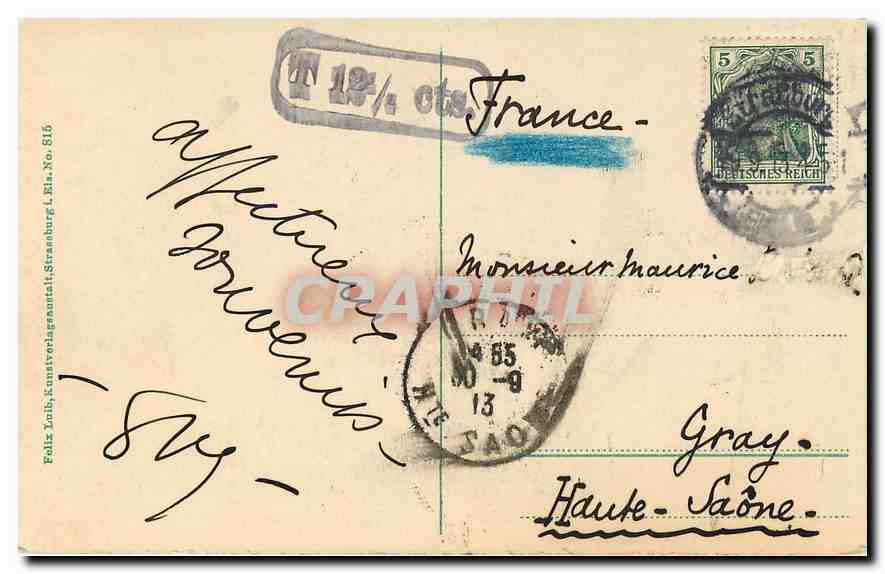 T 12½ cts.
France -
5 5
DEUTSCHES REICH
affectueux
souvenirs -
Monsieur Maurice
CPARHIL
4 55
30 - 9
13
HTE SAO
Gray.
Haute-Saône.
Felix Luib, Kunstverlagsanstalt, Strassburg i. Els. No. 815